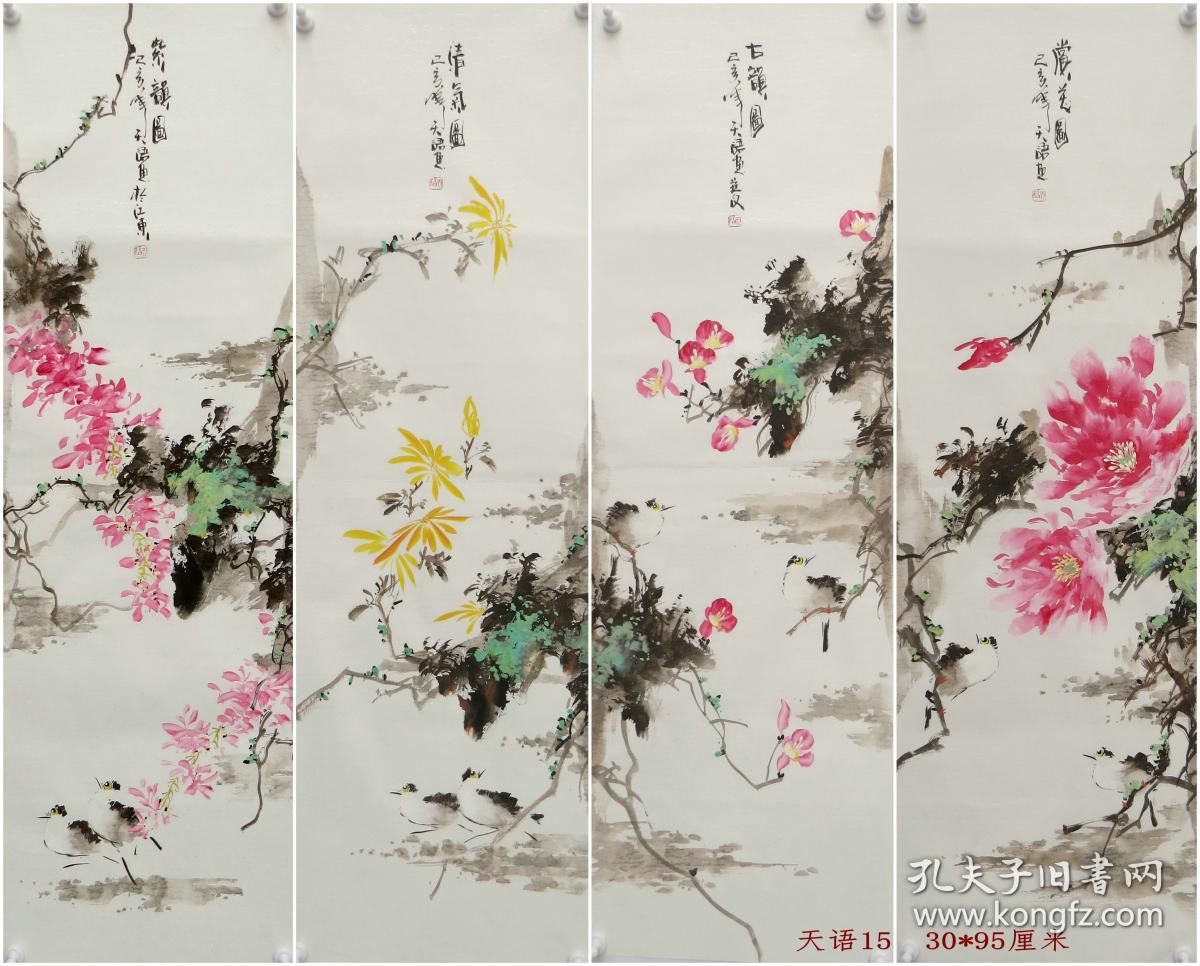 紫韻圖
己亥年天語畫於江南
清氣圖
己亥年天語畫
古韻圖
己亥年天語畫並文
賞美圖
己亥年天語畫
孔夫子旧书网
www.kongfz.com
天语15 30*95厘米